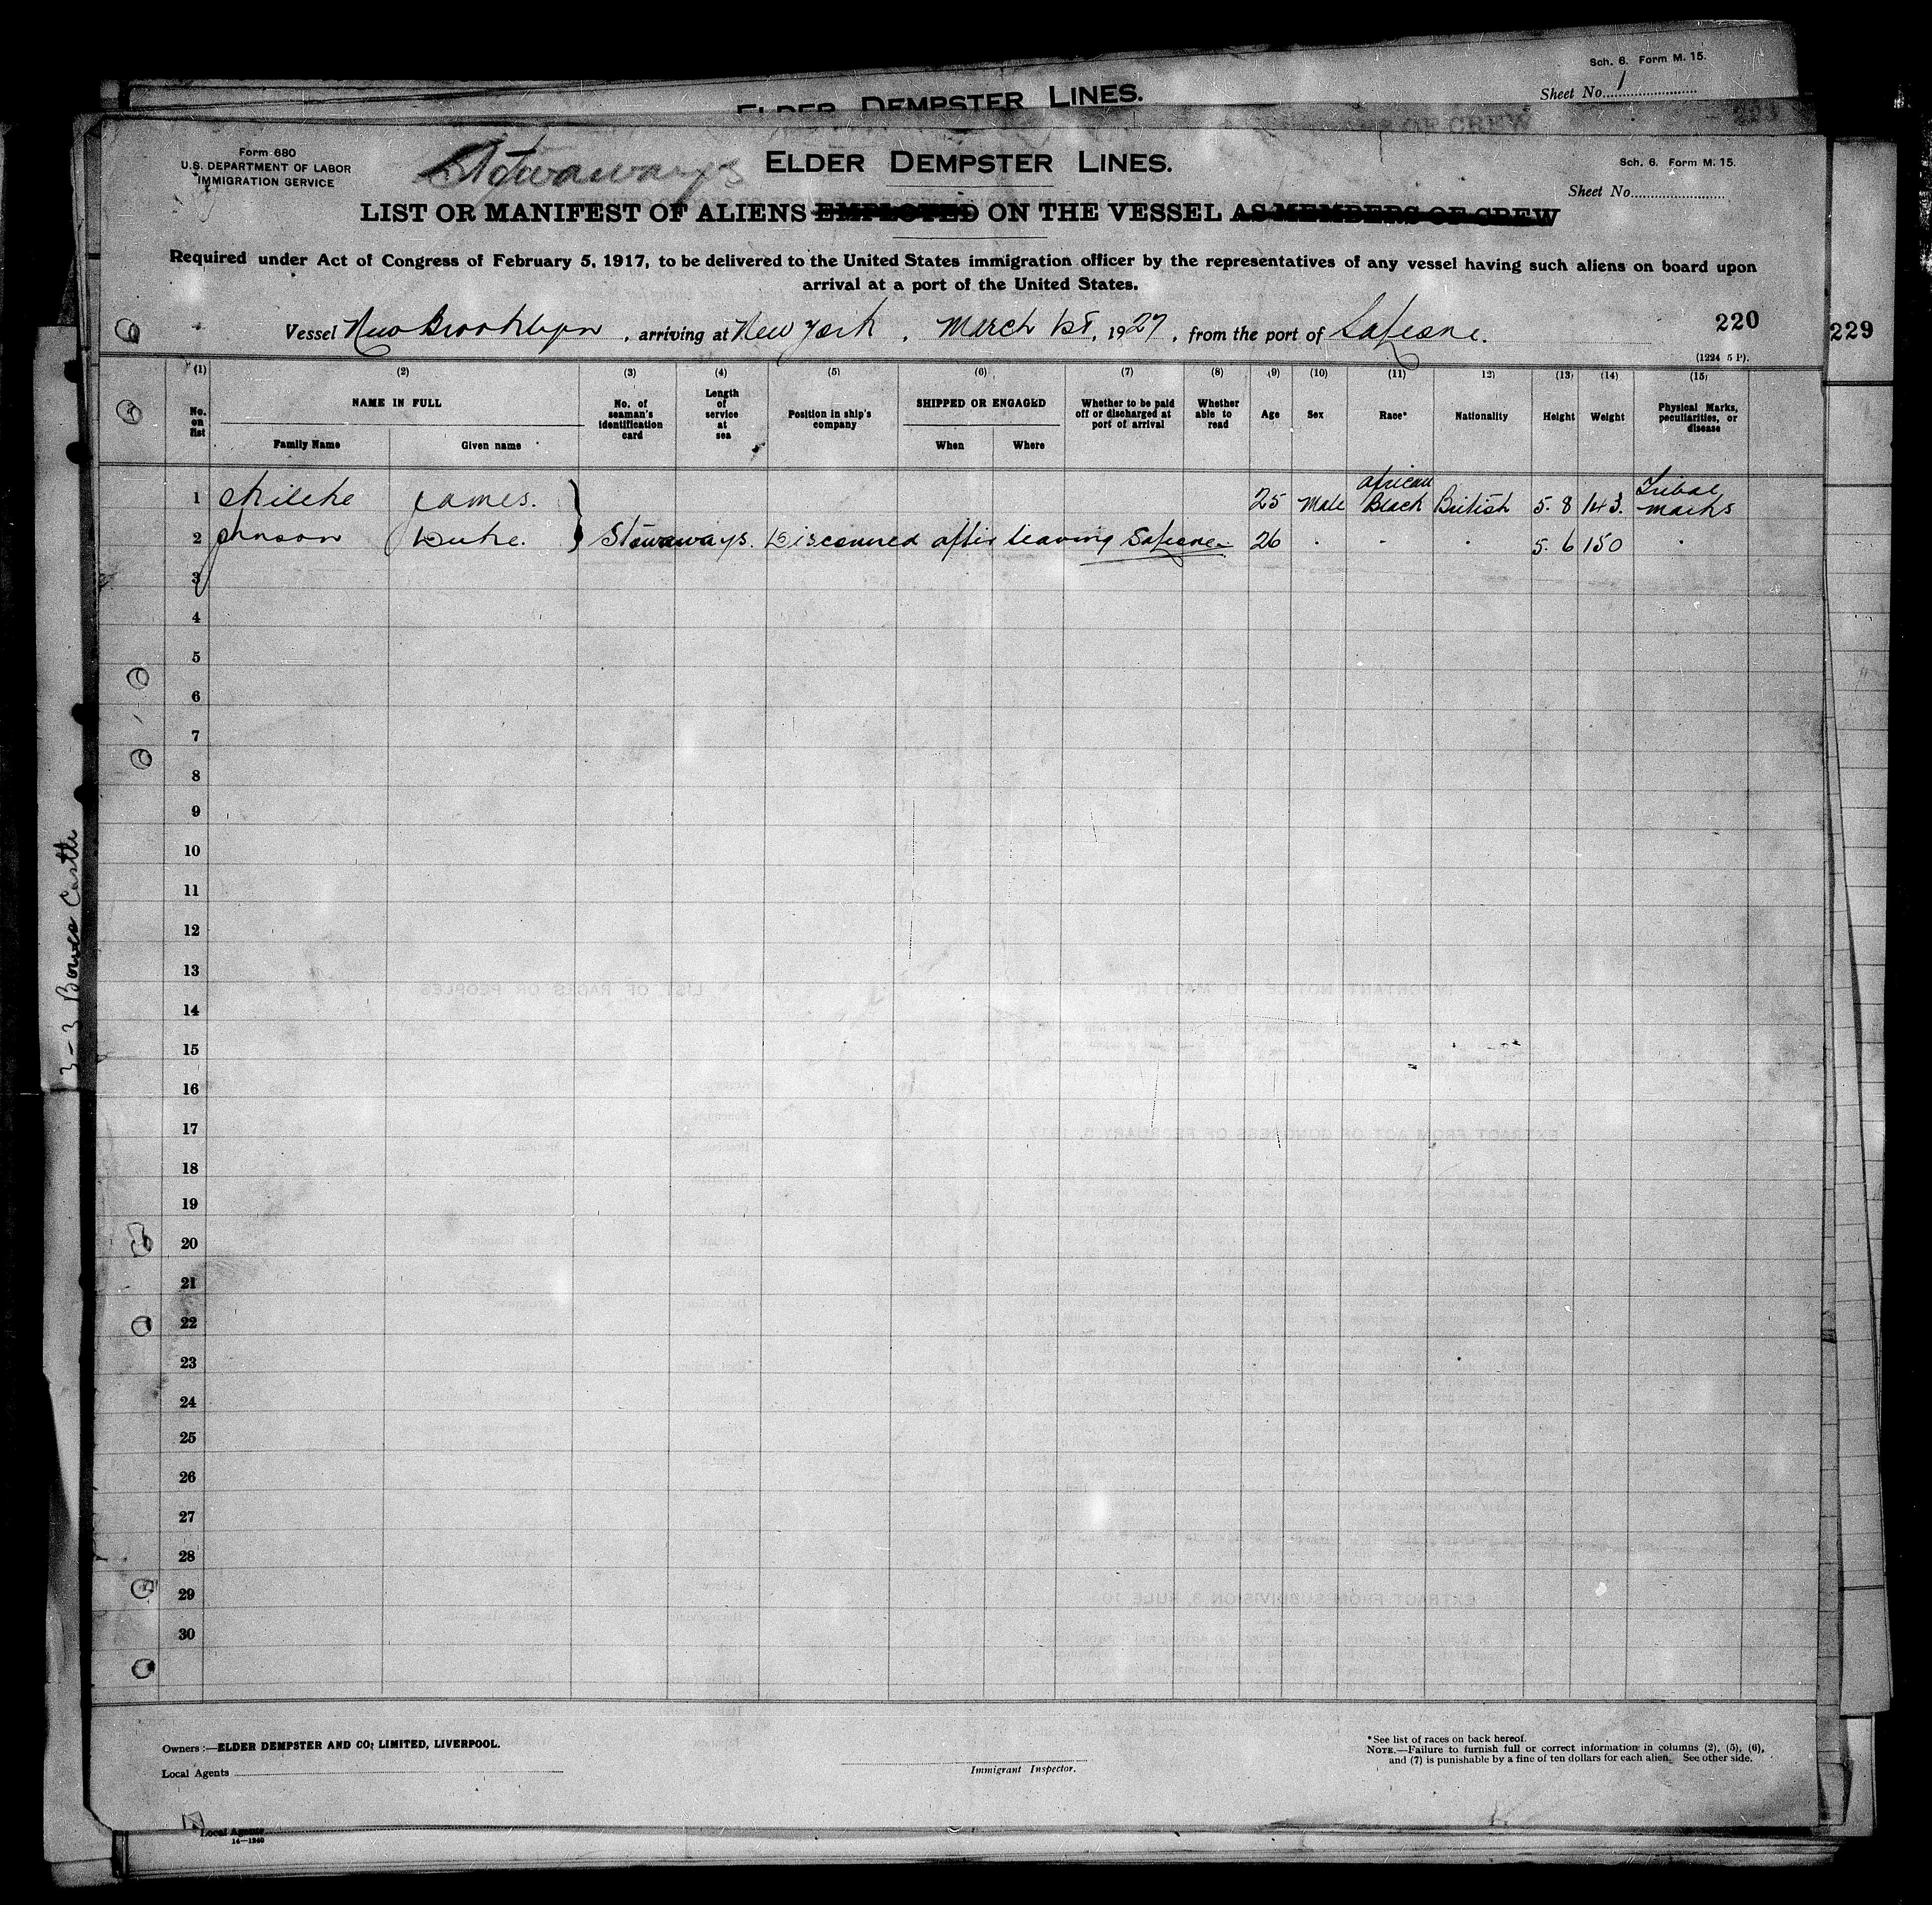 Sch. 6. Form M. 15.
Sheet No. 1
ELDER DEMPSTER LINES.
Form 680
U.S. DEPARTMENT OF LABOR
IMMIGRATION SERVICE
Stowaways
ELDER DEMPSTER LINES.
Sch. 6. Form M. 15.
Sheet No.
LIST OR MANIFEST OF ALIENS EMPLOYED ON THE VESSEL AS MEMBERS OF CREW
Required under Act of Congress of February 5, 1917, to be delivered to the United States immigration officer by the representatives of any vessel having such aliens on board upon
arrival at a port of the United States.
Vessel New Brooklyn, arriving at New York, March 1st, 1927, from the port of
220
229
(1224 5 P).
(1) (2) (3) (4) (5) (6) (7) (8) (9) (10) (11) 12) (13) (14) (15)
No. on list
NAME IN FULL
Family Name
Given name
No. of seaman's identification card
Length of service at sea
Position in ship's company
SHIPPED OR ENGAGED
When
Where
Whether to be paid off or discharged at port of arrival
Whether able to read
Age
Sex
Race*
Nationality
Height
Weight
Physical Marks, peculiarities, or disease
1 James. 25 Male African Black British 5. 8 143. Tribal marks
2 Johnson Duke. Stowaways. Discovered after leaving 26 " " " 5. 6 150 "
3
4
5
6
7
8
9
10
11
12
13
14
15
16
17
18
19
20
21
22
23
24
25
26
27
28
29
30
3-3 Bowes Castle
Owners:—ELDER DEMPSTER AND CO; LIMITED, LIVERPOOL.
Local Agents
Immigrant Inspector.
*See list of races on back hereof.
NOTE.—Failure to furnish full or correct information in columns (2), (5), (6),
and (7) is punishable by a fine of ten dollars for each alien. See other side.
Local Agents
14—1240